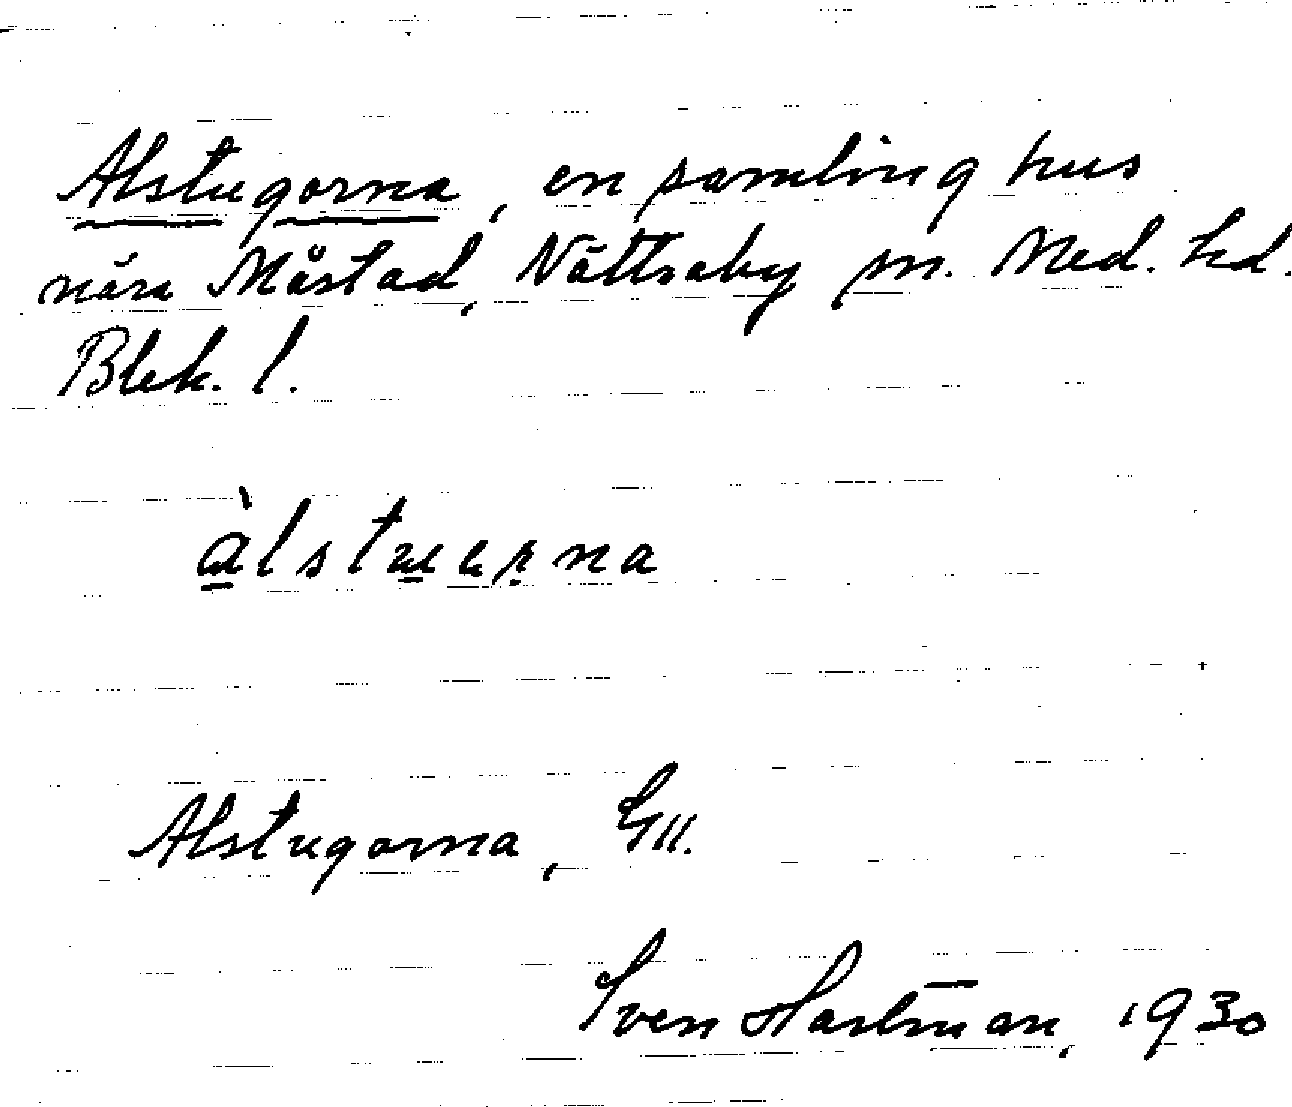 Alstugorna, en samling hus
nära Måstad, Nättraby sn. Med. hd.
Blek. l.
àlstuerna
Alstugorna, GII.
Sven Hartman, 1930